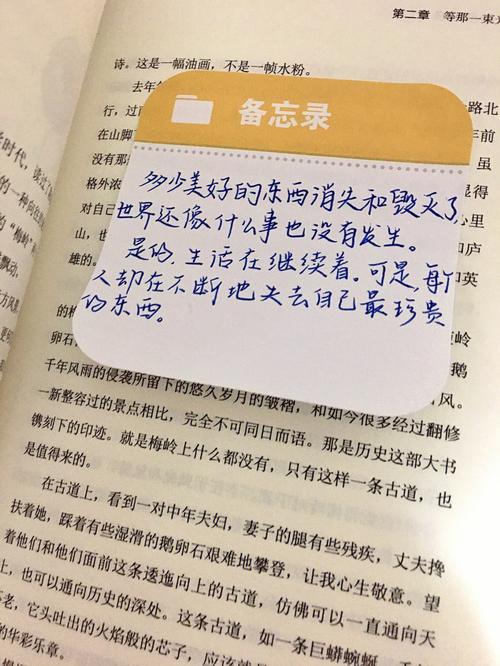 第二章 等那一束
诗。这是一幅油画，不是一帧水粉。
去年
一路北
行，过
在山脚
年前
没有那
格外浓
显得
对自己
山，
和庐
雄的。
和英
备忘录
多少美好的东西消失和毁灭了，
世界还像什么事也没有发生。
是的，生活在继续着。可是，每个
人却在不断地失去自己最珍贵
的东西。
的梅
卵石
鹅
千年风雨的侵袭所留下的悠久岁月的皱褶，和如今很多经过翻修
一新整容过的景点相比，完全不可同日而语。那是历史这部大书
镌刻下的印迹。就是梅岭上什么都没有，只有这样一条古道，也
是值得来的。
在古道上，看到一对中年夫妇，妻子的腿有些残疾，丈夫搀
扶着她，踩着有些湿滑的鹅卵石艰难地攀登，让我心生敬意。望
着他们和他们面前这条逶迤向上的古道，仿佛可以一直通向天
上，也可以通向历史的深处。这条古道，如一条巨蟒蜿蜒，
老，它头吐出的火焰般的芯子，应该就是
的华彩乐章。